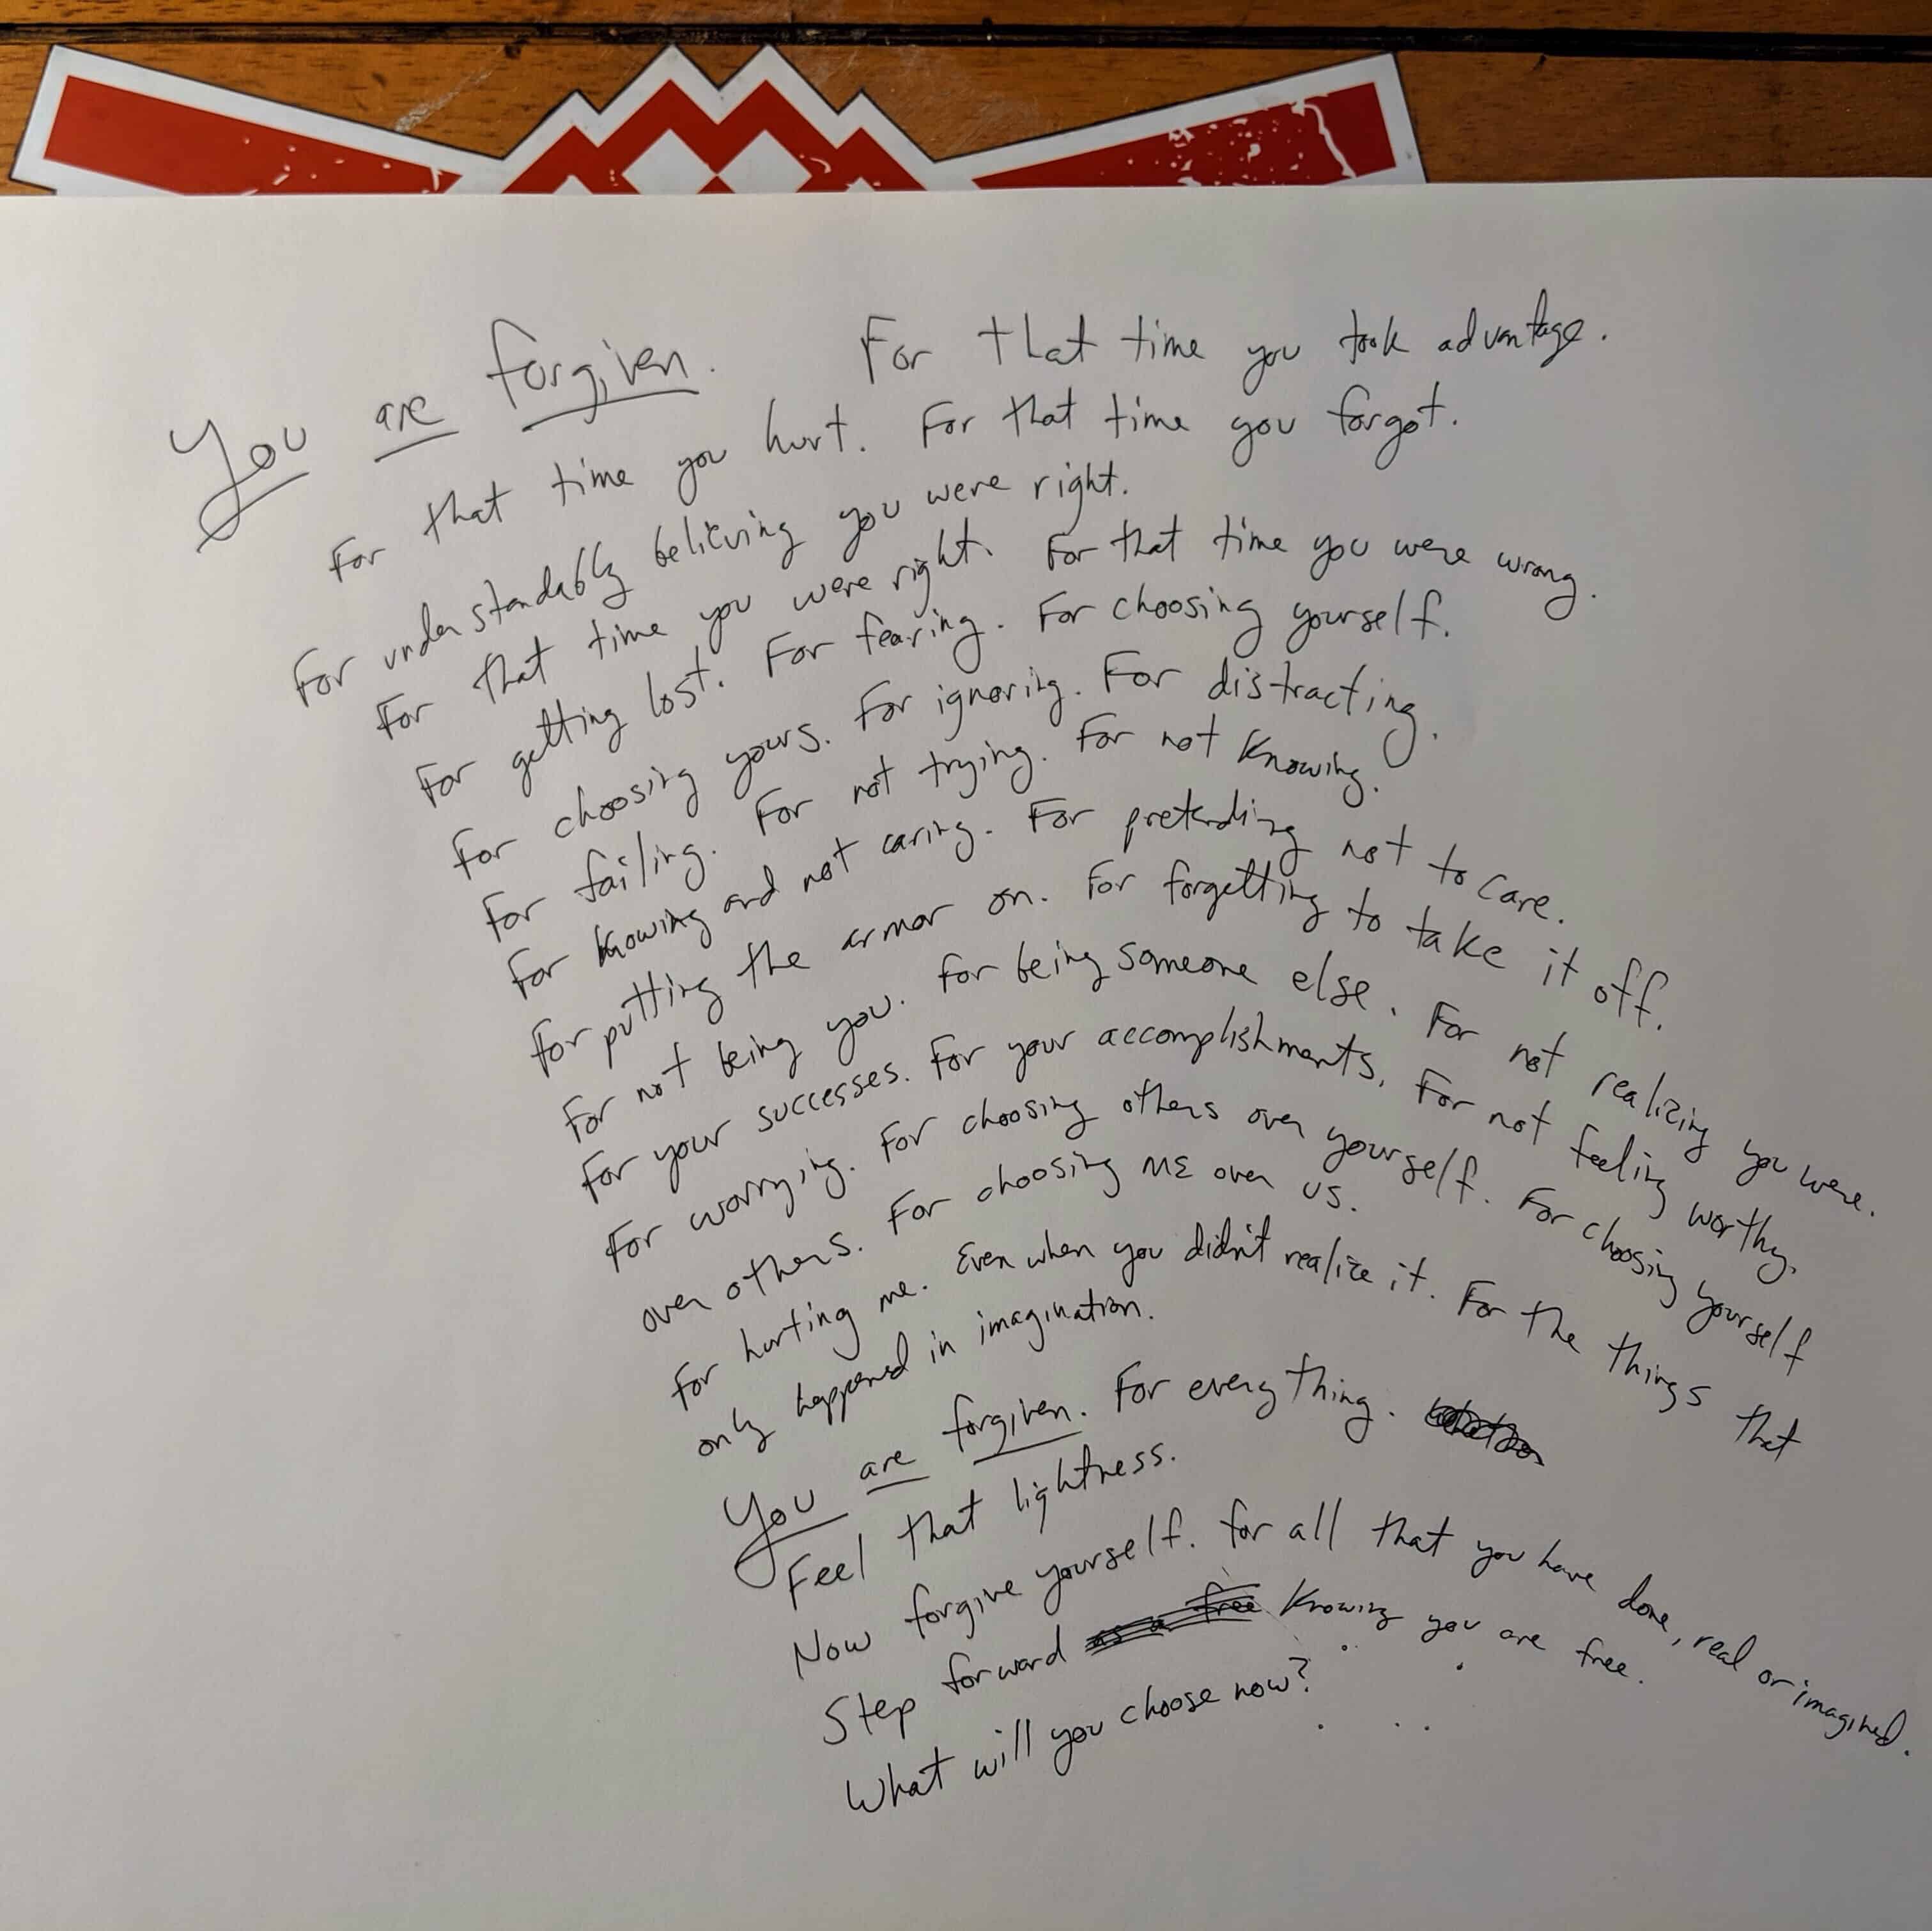 You are forgiven. For that time you took advantage.
For that time you hurt. For that time you forgot.
For understandably believing you were right.
For that time you were right. For that time you were wrong.
For getting lost. For fearing. For choosing yourself.
For choosing yours. For ignoring. For distracting.
For failing. For not trying. For not knowing.
For knowing and not caring. For pretending not to care.
For putting the armor on. For forgetting to take it off.
For not being you. For being someone else. For not realizing you were.
For your successes. For your accomplishments. For not feeling worthy.
For worrying. For choosing others over yourself. For choosing yourself
over others. For choosing me over us.
For hurting me. Even when you didn't realize it. For the things that
only happened in imagination.
You are forgiven. For everything.
Feel that lightness.
Now forgive yourself. For all that you have done, real or imagined.
Step forward as a free knowing you are free.
What will you choose now?